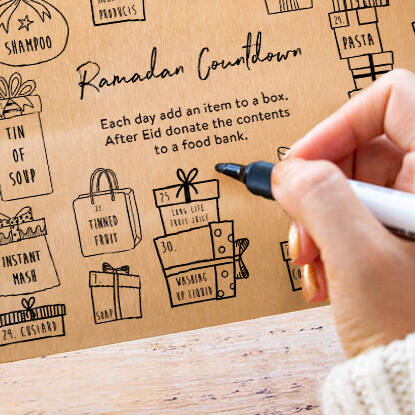 PRODUCTS
SHAMPOO
24.
PASTA
Ramadan Countdown
Each day add an item to a box.
After Eid donate the contents
to a food bank.
TIN
OF
SOUP
21.
TINNED
FRUIT
25
LONG LIFE
FRUIT JUICE
30.
WASHING
UP LIQUID
INSTANT
MASH
SOAP
29. CUSTARD